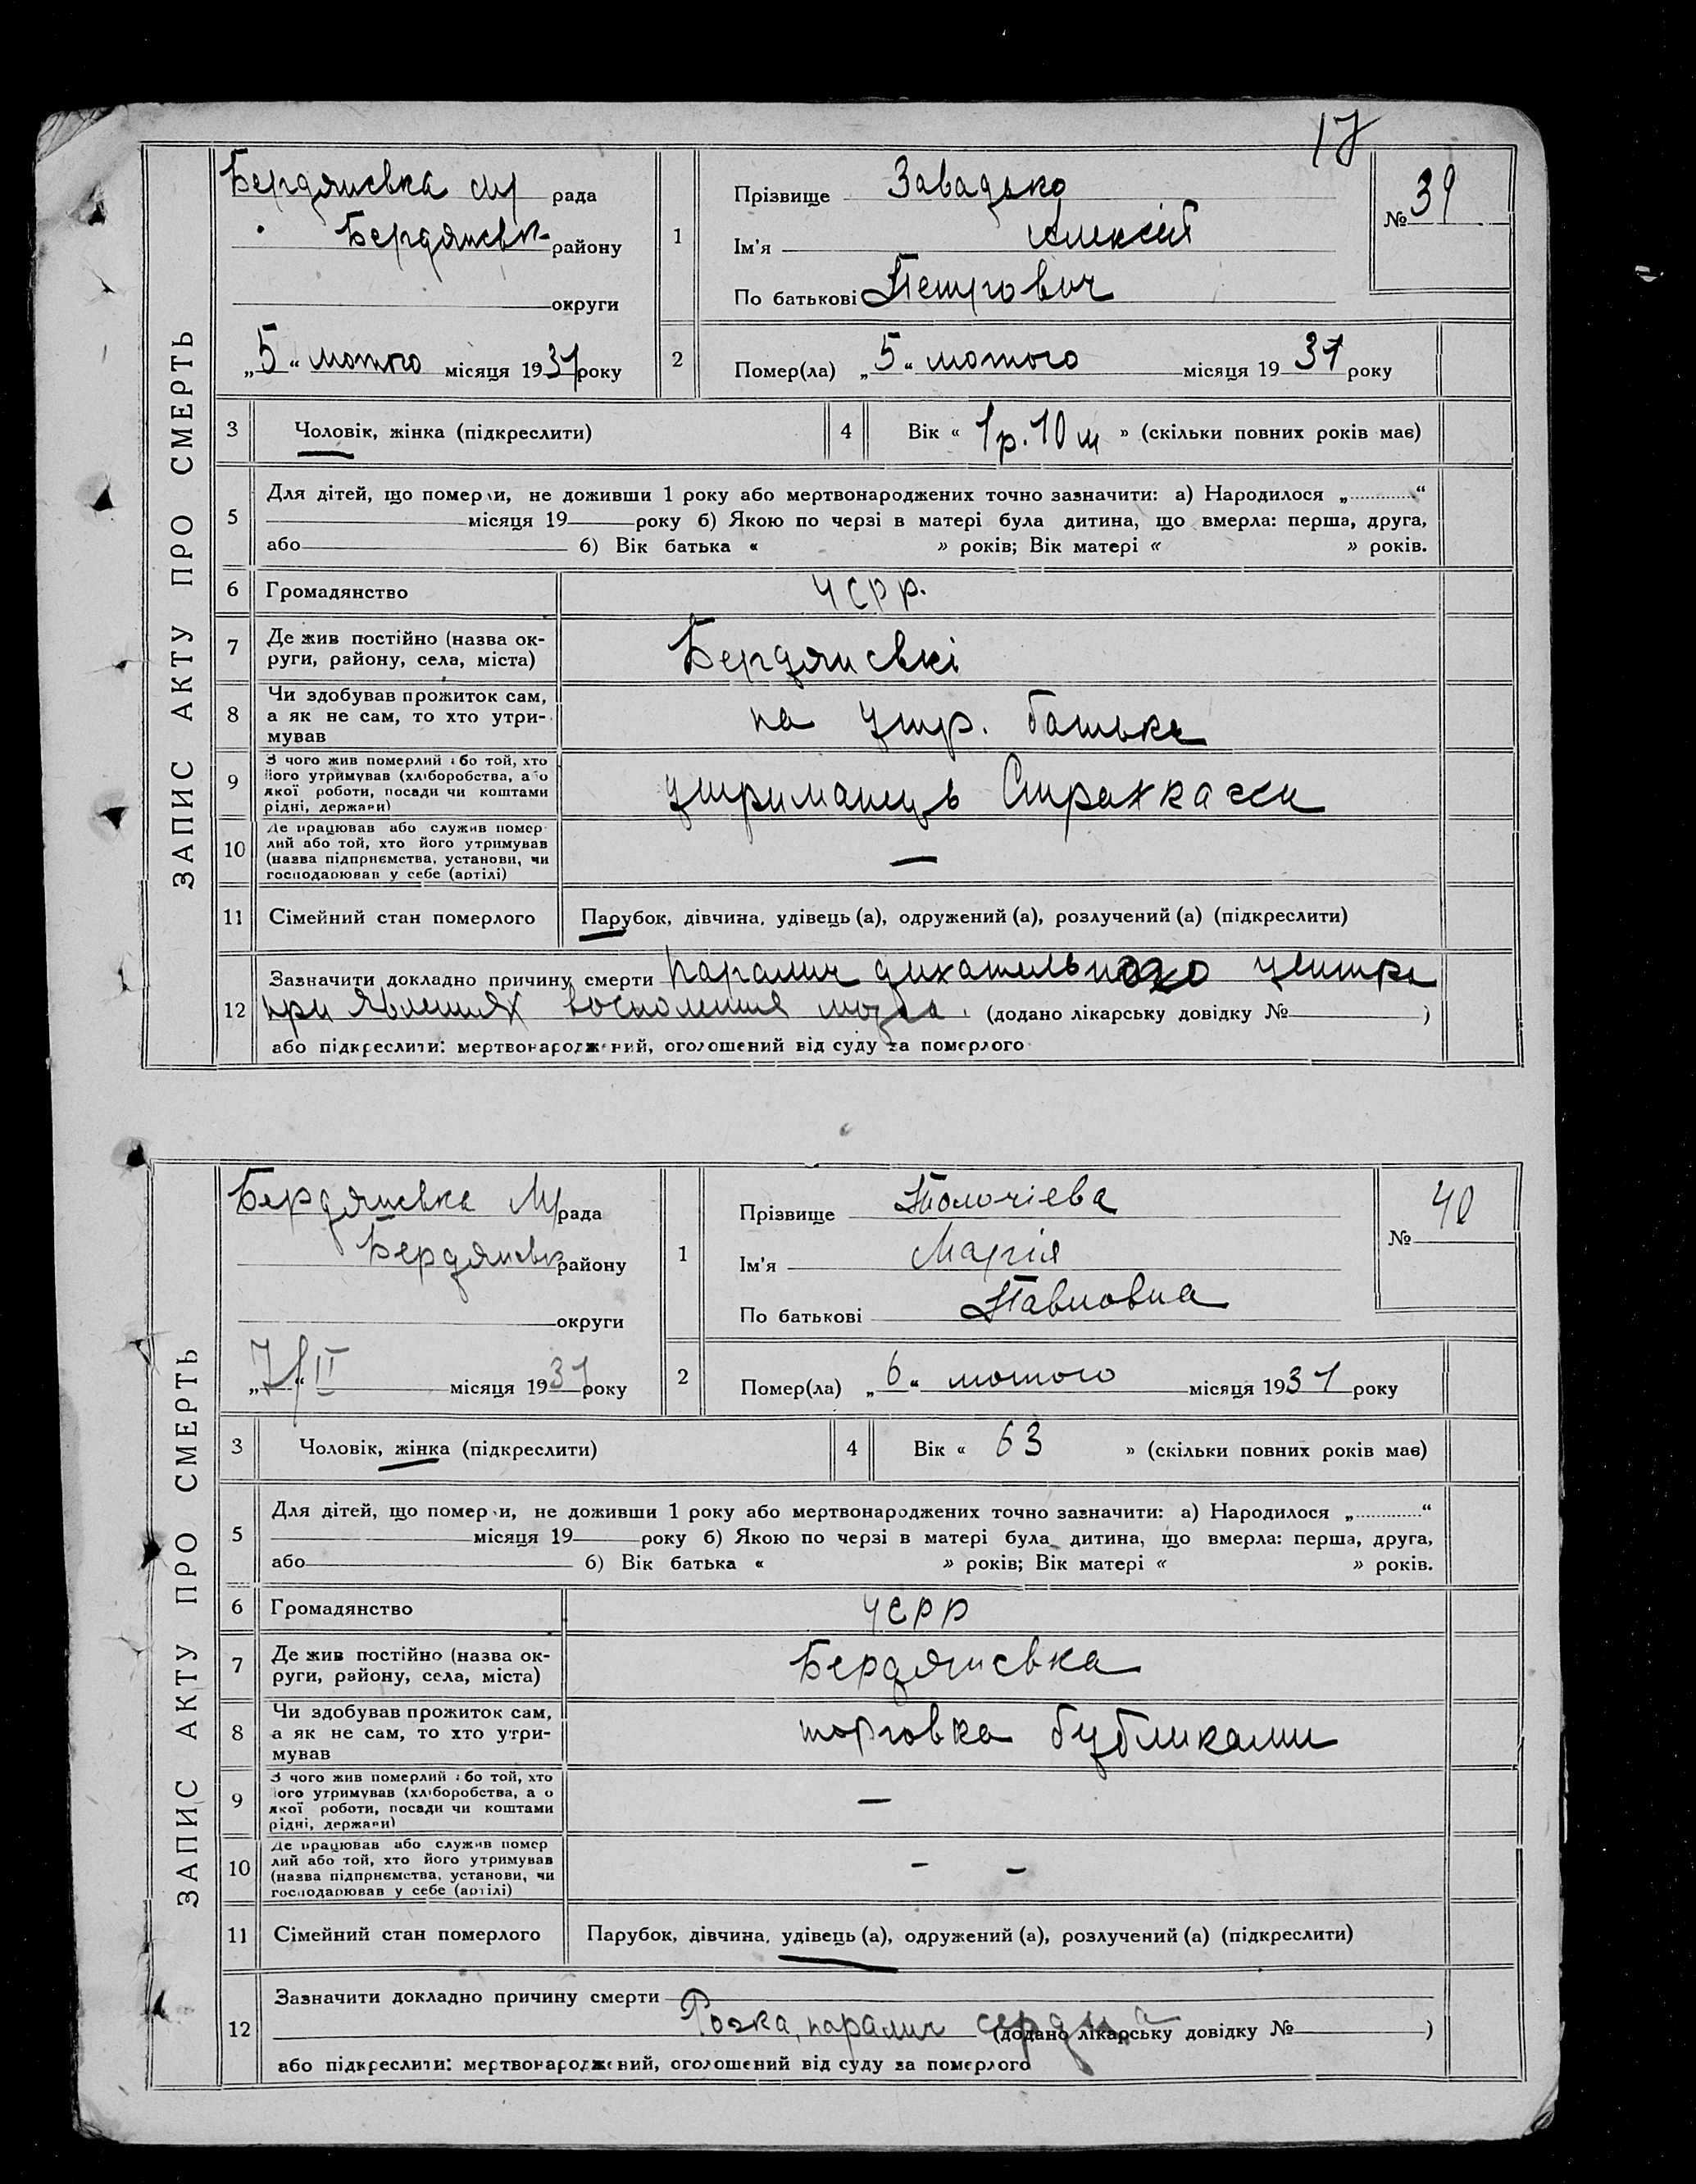 17
ЗАПИС АКТУ ПРО СМЕРТЬ
Бердянська м/р рада
Бердянськ району
округи
„5“ лютого місяця 1931 року
1
Прізвище Завадько
Ім'я Алексей
По батькові Петрович
№ 39
2 Помер(ла) „5“ лютого місяця 1931 року
3 Чоловік, жінка (підкреслити)
4 Вік « 1 р. 10 м » (скільки повних років має)
5 Для дітей, що померли, не доживши 1 року або мертвонароджених точно зазначити: а) Народилося „ “
місяця 19 року б) Якою по черзі в матері була дитина, що вмерла: перша, друга,
або б) Вік батька « » років; Вік матері « » років.
6 Громадянство УСРР.
7 Де жив постійно (назва ок-
руги, району, села, міста)
Бердянські
8 Чи здобував прожиток сам,
а як не сам, то хто утри-
мував
на утр. батька
9 З чого жив померлий або той, хто
його утримував (хліборобства, або
якої роботи, посади чи коштами
рідні, держави)
утриманець Страхкаси
10 Де працював або служив помер-
лий або той, хто його утримував
(назва підприємства, установи, чи
господарював у себе (артілі)
—
11 Сімейний стан померлого Парубок, дівчина, удівець (а), одружений (а), розлучений (а) (підкреслити)
12 Зазначити докладно причину смерти паралич дихательного центра
при явлениях воспаления мозга. (додано лікарську довідку № )
або підкреслити: мертвонароджений, оголошений від суду за померлого
ЗАПИС АКТУ ПРО СМЕРТЬ
Бердянська М/р рада
Бердянськ району
округи
„7/“ II місяця 1931 року
1
Прізвище
Ім'я Марія
По батькові Павловна
№ 40
2 Помер(ла) „6“ лютого місяця 1931 року
3 Чоловік, жінка (підкреслити)
4 Вік « 63 » (скільки повних років має)
5 Для дітей, що померли, не доживши 1 року або мертвонароджених точно зазначити: а) Народилося „ “
місяця 19 року б) Якою по черзі в матері була дитина, що вмерла: перша, друга,
або б) Вік батька « » років; Вік матері « » років.
6 Громадянство УСРР
7 Де жив постійно (назва ок-
руги, району, села, міста)
Бердянська
8 Чи здобував прожиток сам,
а як не сам, то хто утри-
мував
торговка бубликами
9 З чого жив померлий або той, хто
його утримував (хліборобства, або
якої роботи, посади чи коштами
рідні, держави)
—
10 Де працював або служив помер
лий або той, хто його утримував
(назва підприємства, установи, чи
господарював у себе (артілі)
- -
11 Сімейний стан померлого Парубок, дівчина, удівець (а), одружений (а), розлучений (а) (підкреслити)
12 Зазначити докладно причину смерти
Рожа, паралич сердца (додано лікарську довідку № )
або підкреслити: мертвонароджений, оголошений від суду за померлого